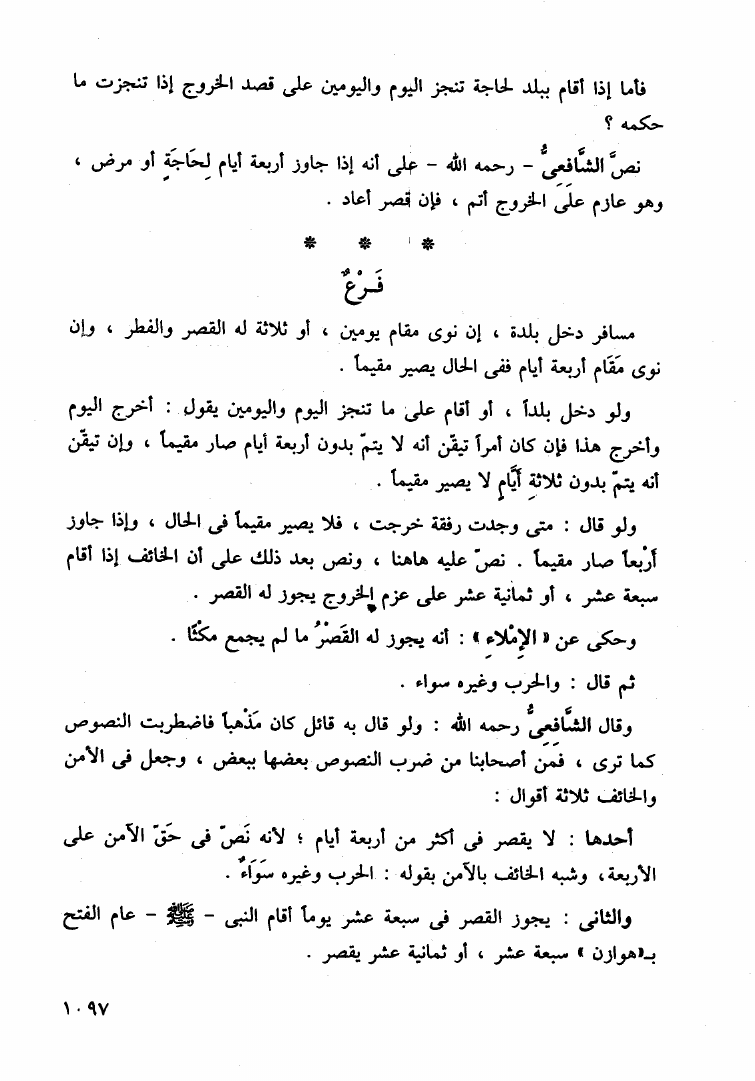 فأما إذا أقام ببلد لحاجة تنجز اليوم واليومين على قصد الخروج إذا تنجزت ما
حكمه ؟
نصَّ الشَّافعىُّ - رحمه الله - على أنه إذا جاوز أربعة أيام لِحَاجَةٍ أو مرض ،
وهو عازم علَى الخروج أتم ، فإن قصر أعاد .
* * *
فَـرْعٌ
مسافر دخل بلدة ، إن نوى مقام يومين ، أو ثلاثة له القصر والفطر ، وإن
نوى مَقَام أربعة أيام ففى الحال يصير مقيماً .
ولو دخل بلداً ، أو أقام على ما تنجز اليوم واليومين يقول : أخرج اليوم
وأخرج هذا فإن كان أمراً تيقّن أنه لا يتمّ بدون أربعة أيام صار مقيماً ، وإن تيقّن
أنه يتمّ بدون ثلاثةِ أَيَّامٍ لا يصير مقيماً .
ولو قال : متى وجدت رفقة خرجت ، فلا يصير مقيماً فى الحال ، وإذا جاوز
أَرْبعاً صار مقيماً . نصّ عليه هاهنا ، ونص بعد ذلك على أن الخائف إذا أقام
سبعة عشر ، أو ثمانية عشر على عزم الخروج يجوز له القصر .
وحكى عن « الإِمْلاءِ » : أنه يجوز له القَصْرُ ما لم يجمع مكْثًا .
ثم قال : والحرب وغيره سواء .
وقال الشَّافعِىُّ رحمه الله : ولو قال به قائل كان مَذْهباً فاضطربت النصوص
كما ترى ، فمَن أصحابنا من ضرب النصوص بعضها ببعض ، وجعل فى الأمن
والخائف ثلاثة أقوال :
أحدها : لا يقصر فى أكثر من أربعة أيام ؛ لأنه نَصّ فى حَقّ الآمن على
الأربعة، وشبه الخائف بالآمن بقوله : الحرب وغيره سَوَاءٌ .
والثانى : يجوز القصر فى سبعة عشر يوماً أقام النبى - ﷺ - عام الفتح
بـ«هوازن » سبعة عشر ، أو ثمانية عشر يقصر .
١٠٩٧